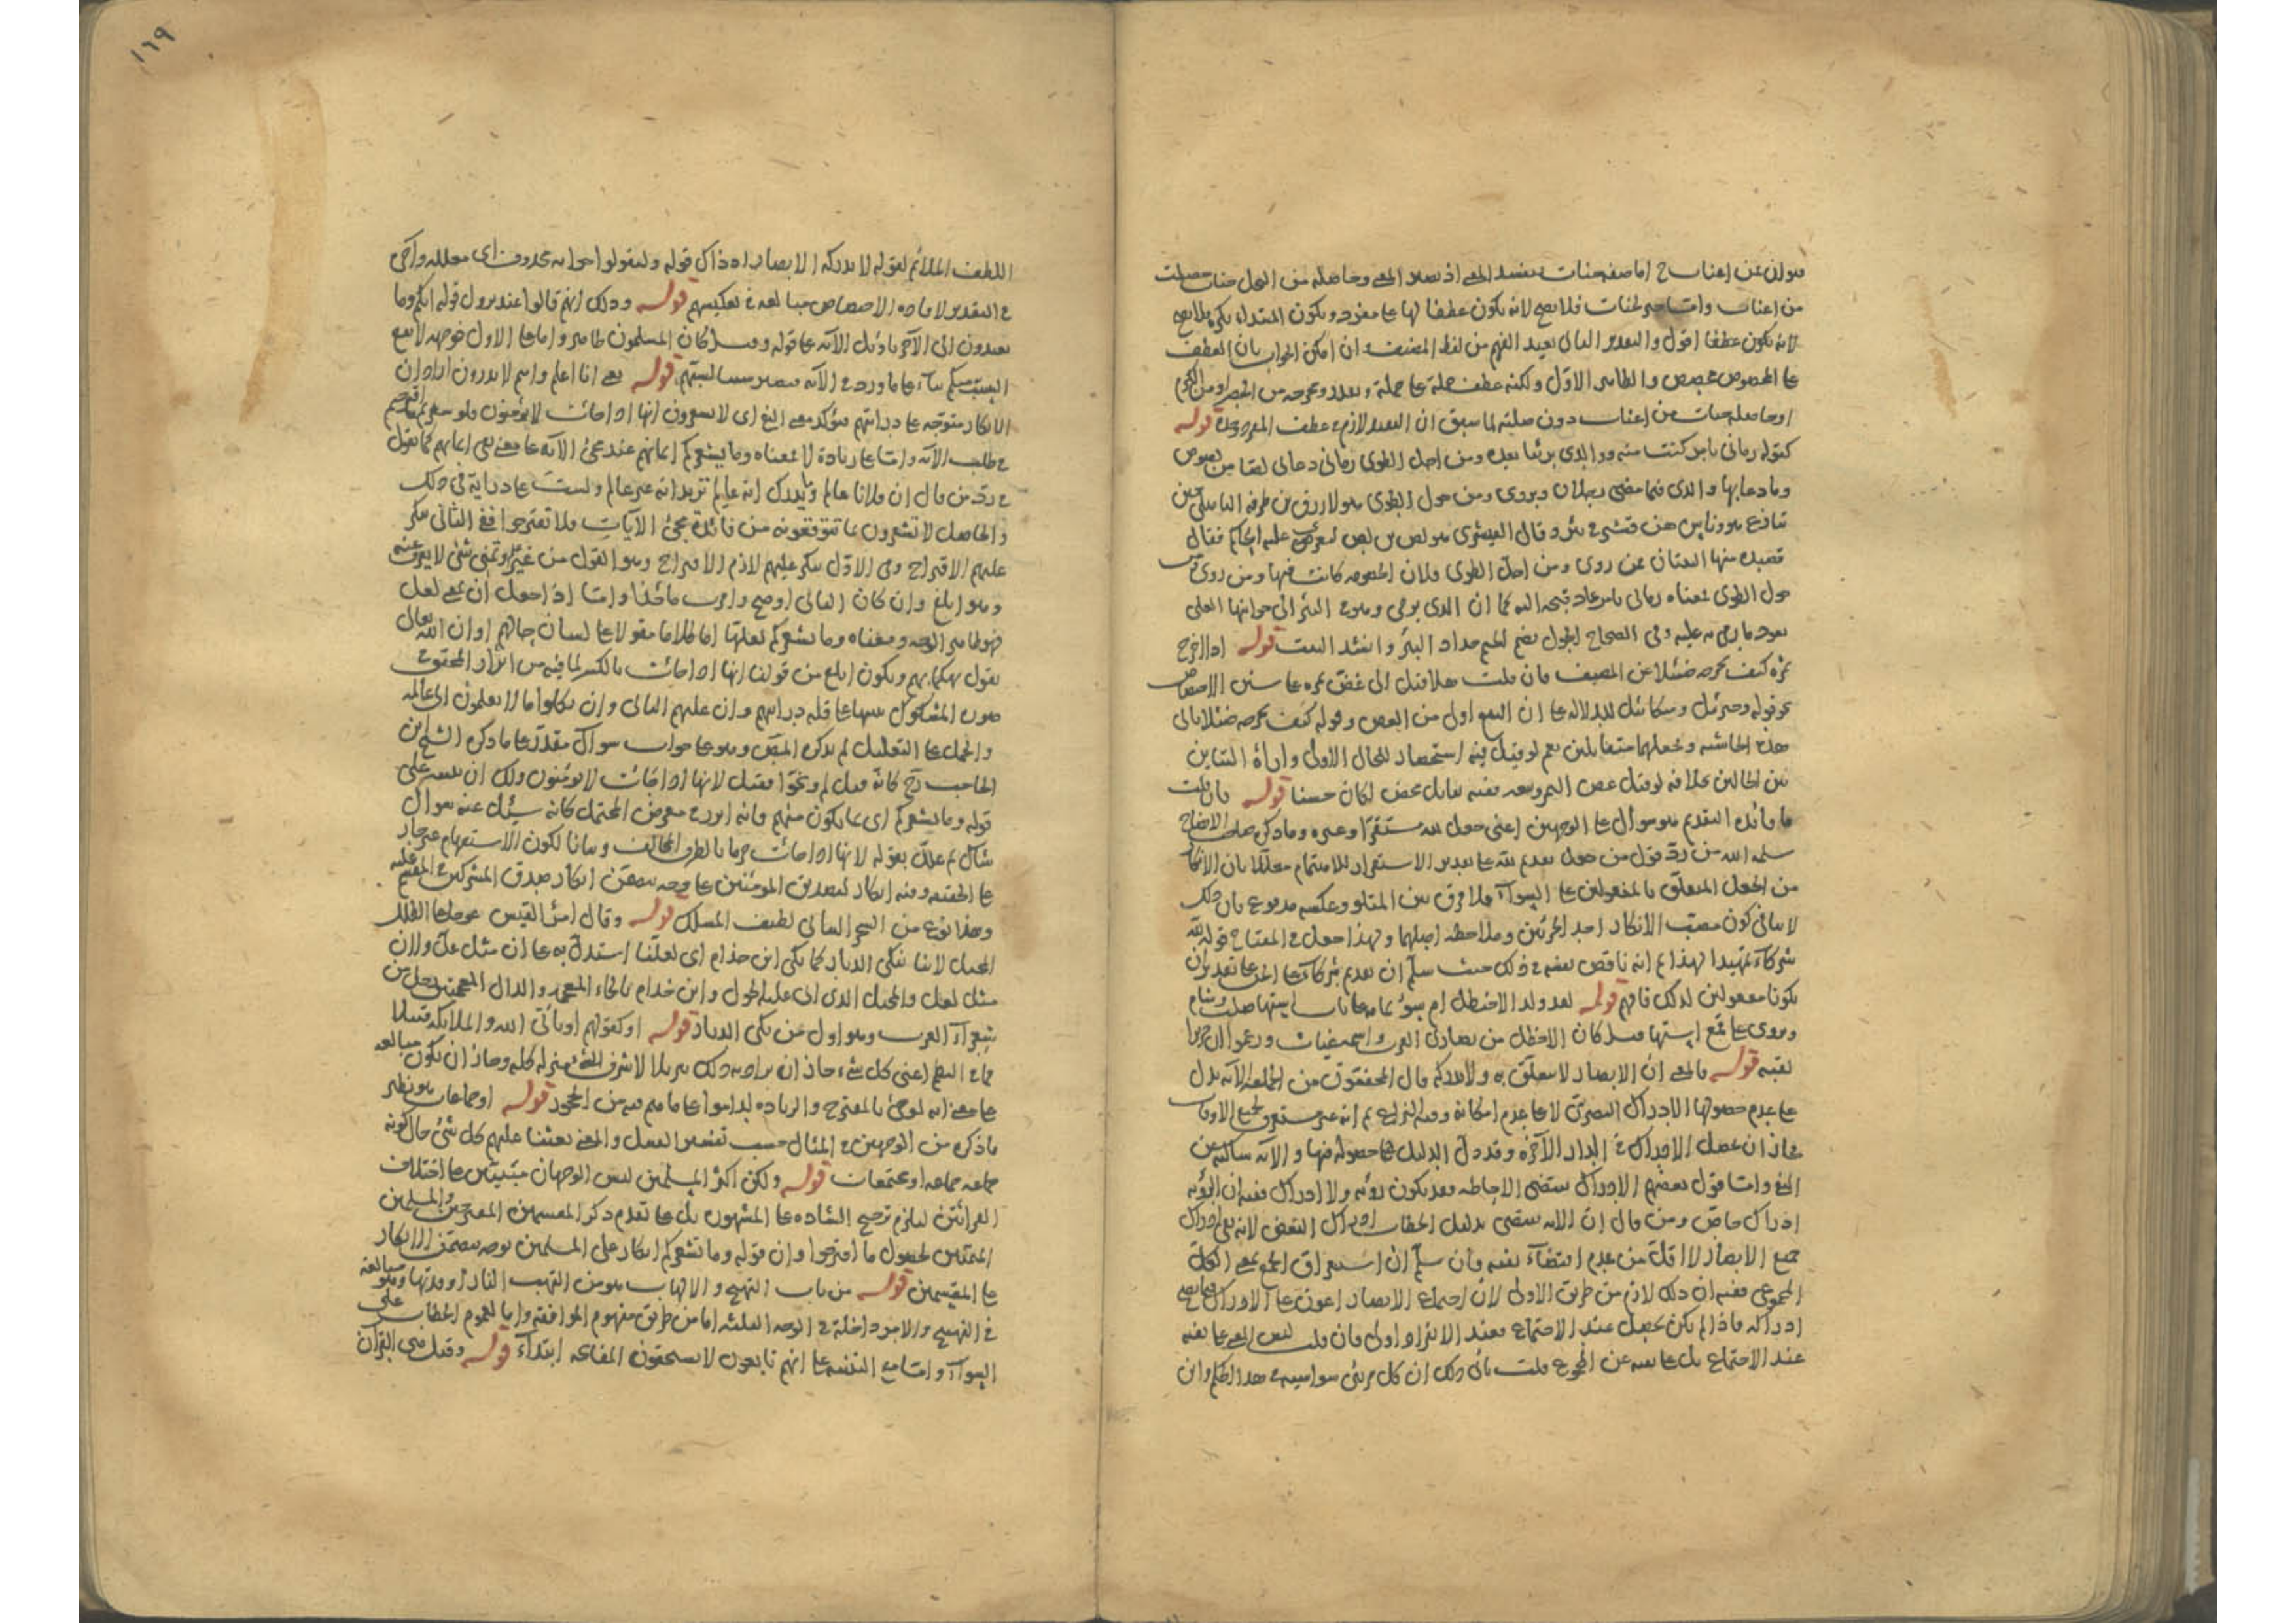 من اعناب واما صفة لجنات فلا يصح لانه يكون عطفا لها على مفرد ويكون المبتداء نكرة فلا يصح
لانه يكون عطفا اقول والتقدير الثاني بعيد الفهم من لفظ المصنف وان امكن الجواب بان العطف
على المخصوص مخصص والظاهر الاول ولكنه عطف جملة على جملة
او حاصلة جنات من اعناب دون صلته لما سبق ان التقييد لازم في عطف المفرد وحده قوله
كقوله رماني بامر كنت منه ووالدي بريئا بعده ومن اجل الطوي رماني دعاني لصا من لصوص
وما دعا بها والدي فيما مضى رجلان ويروى ومن جول الطوي هو لازرق بن طرفة الباهلي حين
تنازع هو وناس من قشير في بئر وقال القشيري هو لص بن لص ليعرض عليه الحاكم فقال
قصيدة منها البيتان فمن روى ومن اجل الطوي فلان الخصومة كانت فيها ومن روى من
جول الطوي فمعناه رماني بامر عاد قبحه اليه كما ان الذي يرمي وهو في البئر الى جوانبها العلى
يعود ما رمي به عليه وفي الصحاح الجول بضم الجيم جدار البئر وانشد البيت قوله اذا اخرج
ثمره كيف يخرجه ضئلا عن المصنف فان قلت هلا قيل الى غض ثمره على سنن الاختصاص
نحو قوله وجبرئيل وميكائيل للدلالة على ان الينع اولى من الغض وقوله كيف يخرجه ضئلا يأبى
هذه الحاشية وجعلهما متقابلين نعم لو قيل فيه استحضار للحال الاولى واراة التباين
بين الحالين بخلافه لو قيل غض الثمر وينعه ففيه تقابل محض لكان حسنا قوله فان قلت
ما فائدة التقديم هو سوال على الوجهين اعني جعل لله مستقرا وغيره وما ذكره صاحب الايضاح
سلمه الله من رد قول من جعل تقديم لله على تقدير الاستقرار للاهتمام معللا بان الانكار
من الجعل المتعلق بالمفعولين على السواء فلا فرق بين المتلو وعكسه مدفوع بان ذلك
لا ينافي كون مصب الانكار احد الجزئين وملاحظة اصلهما ولهذا جعل في المفتاح قوله لله
شركاء تمهيدا لهذا ثم انه ناقض نفسه في ذلك حيث سلم ان تقديم شركاء على الجن على تقدير ان
يكونا مفعولين لذلك فافهم قوله لقد ولد الاخيطل ام سوء على باب استها صلب وشام
ويروى على قمع استها قيل كان الاخطل من نصارى العرب واسمه غياث
لقبه قوله فالمعنى ان الابصار لا تتعلق به ولا تدركه قال المحققون من الجماعة الآية تدل
على عدم حصولها الادراك البصري لا على عدم امكانه وفيه النزاع ثم انه غير مستغرق لجميع الاوقات
فجاز ان يحصل الادراك في الدار الآخرة وقد دل الدليل على حصوله فيها والآية ساكتة عن
النفي واما قول بعضهم الادراك يقتضي الاحاطة فقد يكون رؤية ولا ادراك ففيه ان الرؤية
ادراك خاص ومن قال ان الآية تقتضي بدليل الخطاب ادراك البعض لانه نفى ادراك
جميع الابصار لا اقل من عدم اقتضاء نفيه فان سلم ان استغراق الجمع بمعنى الكل
المجموعي ففيه ان ذلك لازم من طريق الاولى لان اجتماع الابصار اعون على الادراك فيما يصح
ادراكه فاذا لم يكن يحصل عند الاجتماع فعند الانفراد اولى فان قلت ليس المعنى على نفيه
عند الاجتماع بل على نفيه عن المجموع قلت يأبى ذلك ان كل مرئي سواسية في هذا الحكم وان
١٦٩
اللطف الملائم لقوله لا تدركه الابصار اذ ذاك قوله وليقولوا جوابه محذوف اي معللة واخر
في التقدير لافادة الاختصاص مبالغة في تعكيسهم قوله وذلك انهم قالوا عند نزول قوله انكم وما
تعبدون الى الآخر تأويل الآية على قوله وقيل كان المسلمون ظاهر واما على الاول فوجهه لا يقع
السب منكم بناء على ما ورد في الآية قوله يعني انا اعلم وانتم لا تدرون اراد ان
الانكار متوجه على درايتهم مؤكد معنى النفي اي لا تشعرون انها اذا جاءت لا يؤمنون
في طلب الآية واما على زيادة لا فمعناه وما يشعركم ايمانهم عند مجئ الآية على معنى نفي ايمانهم كما تقول
في رد من قال ان فلانا عالم وما يدرك انه عالم تريد انه غير عالم ولست على دراية في ذلك
والحاصل لا تشعرون بما تتوقعونه من فائدة مجئ الآيات فلا تقترحوا ففي الثاني ينكر
عليهم الاقتراح وفي الاول ينكر عليهم لازم الاقتراح وهو القول من غير تحقق شئ لا يعرف
وهو ابلغ وان كان الثاني اوضح واقرب مأخذا واما اذا جعل ان بمعنى لعل
فهو ظاهر الوجه ومعناه وما يشعركم لعلها اما كلاما مقولا على لسان حالهم او ان الله تعالى
يقول تهكما بهم ويكون ابلغ من قولنا انها اذا جاءت بالكسر لما فيه من ابراز المحتوم في
صورة المشكوك تنبيها على قلة درايتهم
والحمل على التعليل لم يذكره المص وهو على جواب سوال مقدر على ما ذكره الشيخ ابن
الحاجب رح كانه قيل لم وبخوا فقيل لانها اذا جاءت لا يؤمنون ولك ان تبنيه على
قوله وما يشعركم اي بما يكون منهم فانه ابرز في معرض المحتمل كانه سئل عنه سوال
شاك ثم علل بقوله لانها اذا جاءت جزما بالطرف المخالف وبيانا لكون الاستفهام غير جار
على الحقيقة وفيه انكار لتصديق المؤمنين على وجه يتضمن انكار صدق المشركين في المقسم عليه
وهذا نوع من السحر البياني لطيف المسلك قوله وقال امرؤ القيس عوجا على الطلل
المحيل لاننا نبكي الديار كما بكى ابن خذام اي لعلنا استدل به على ان مثل عل ولان
مثل لعل والمحيل الذي اتى عليه الحول وابن خذام بالخاء المعجمة والذال المعجمة رجل من
شعراء العرب وهو اول من بكى الديار قوله او كقولهم او تأتي بالله والملائكة قبيلا
على معنى انه لو جئ بالمقترح والزيادة لداموا على ما هم فيه من الجحود قوله او جماعات هو نظير
ما ذكره من الوجهين في المثال حسب تفسير القبيل والمعنى بعثنا عليهم كل شئ حال كونه
جماعة جماعة او مجتمعات قوله ولكن اكثر المسلمين ليس الوجهان مبنيين على اختلاف
القرائتين ليلزم ترجيح الشاذة على المشهورة بل على تقدم ذكر المقسمين المقترحين والمسلمين
المتمنين لحصول ما اقترحوا وان قوله وما يشعركم انكار على المسلمين بوجه يتضمن الانكار
على المقسمين قوله من باب التهييج والالهاب هو من التهب النار اوقدتها وهو مبالغة
في التهييج والامور داخلة في الوجه الثلثة اما من طريق مفهوم الموافقة واما لعموم الخطاب على
السواء واما مع التنبيه على انهم تابعون لا يستحقون المفاتحة ابتداء قوله وقيل هي القرآن